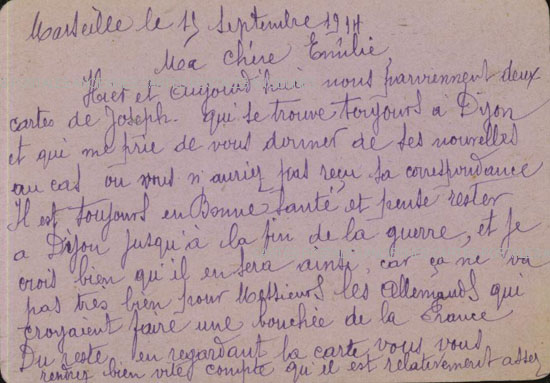 Marseille le 15 Septembre 1914
Ma chère Emilie,
Hier et aujourd'hui nous parviennent deux
cartes de Joseph. qui se trouve toujours à Dijon
et qui me prie de vous donner de ses nouvelles
au cas ou vous n'auriez pas reçu sa correspondance
Il est toujours en Bonne santé et pense rester
a Dijon jusqu'à la fin de la guerre, et je
crois bien qu'il en sera ainsi, car ça ne va
pas très bien pour Messieurs les allemands qui
croyaient faire une bouchée de la France
Du reste en regardant la carte vous vous
rendrez bien vite compte qu'il est relativement assez